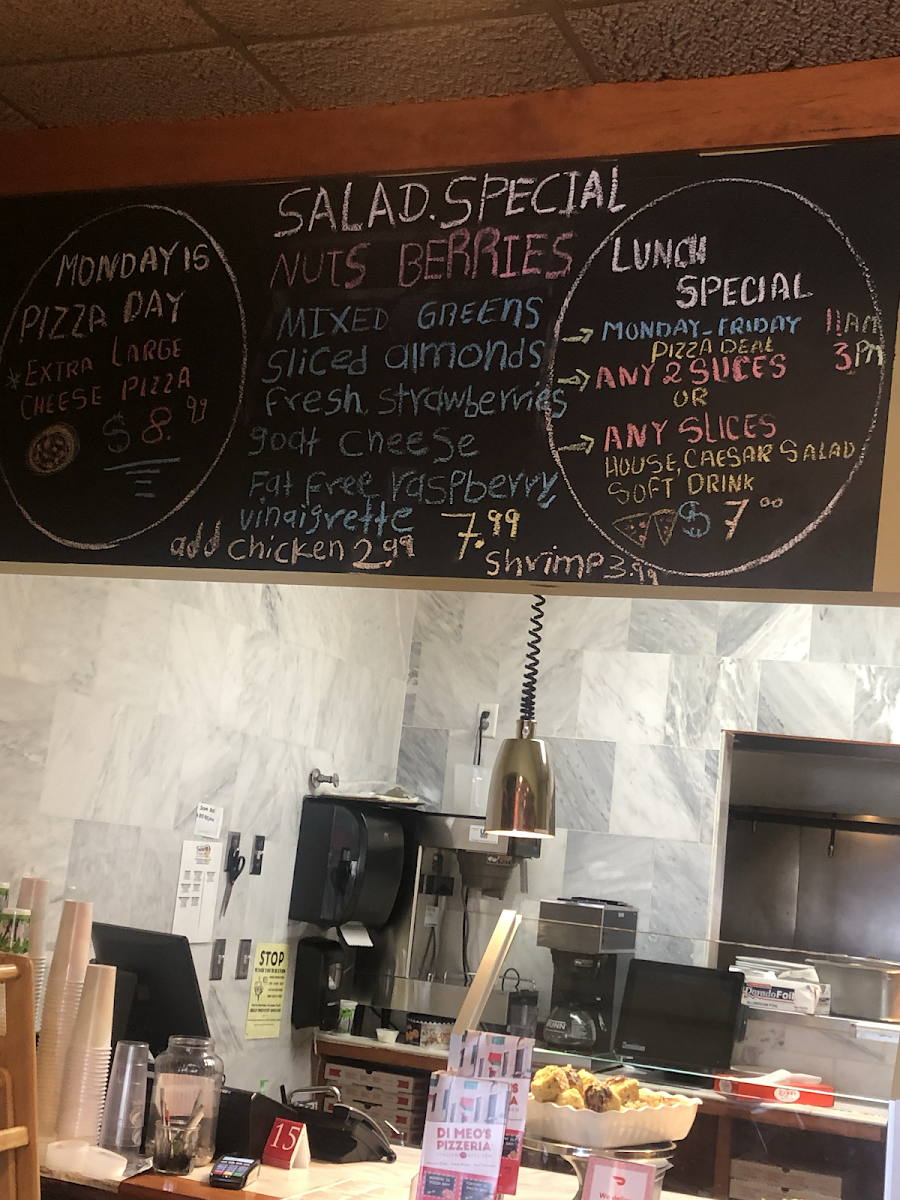 MONDAY IS
PIZZA DAY
*EXTRA LARGE
CHEESE PIZZA
$8.99
SALAD. SPECIAL
NUTS BERRIES
MIXED GREENS
Sliced almonds
fresh strawberries
goat cheese
Fat free raspberry
vinaigrette 7.99
add chicken 2.99 Shrimp 3.99
LUNCH
SPECIAL
→ MONDAY-FRIDAY 11AM
PIZZA DEAL 3PM
→ ANY 2 SLICES
OR
→ ANY SLICES
HOUSE, CAESAR SALAD
SOFT DRINK
$7.00
STOP
BUNN
DoradoFoil
15
DI MEO'S
PIZZERIA